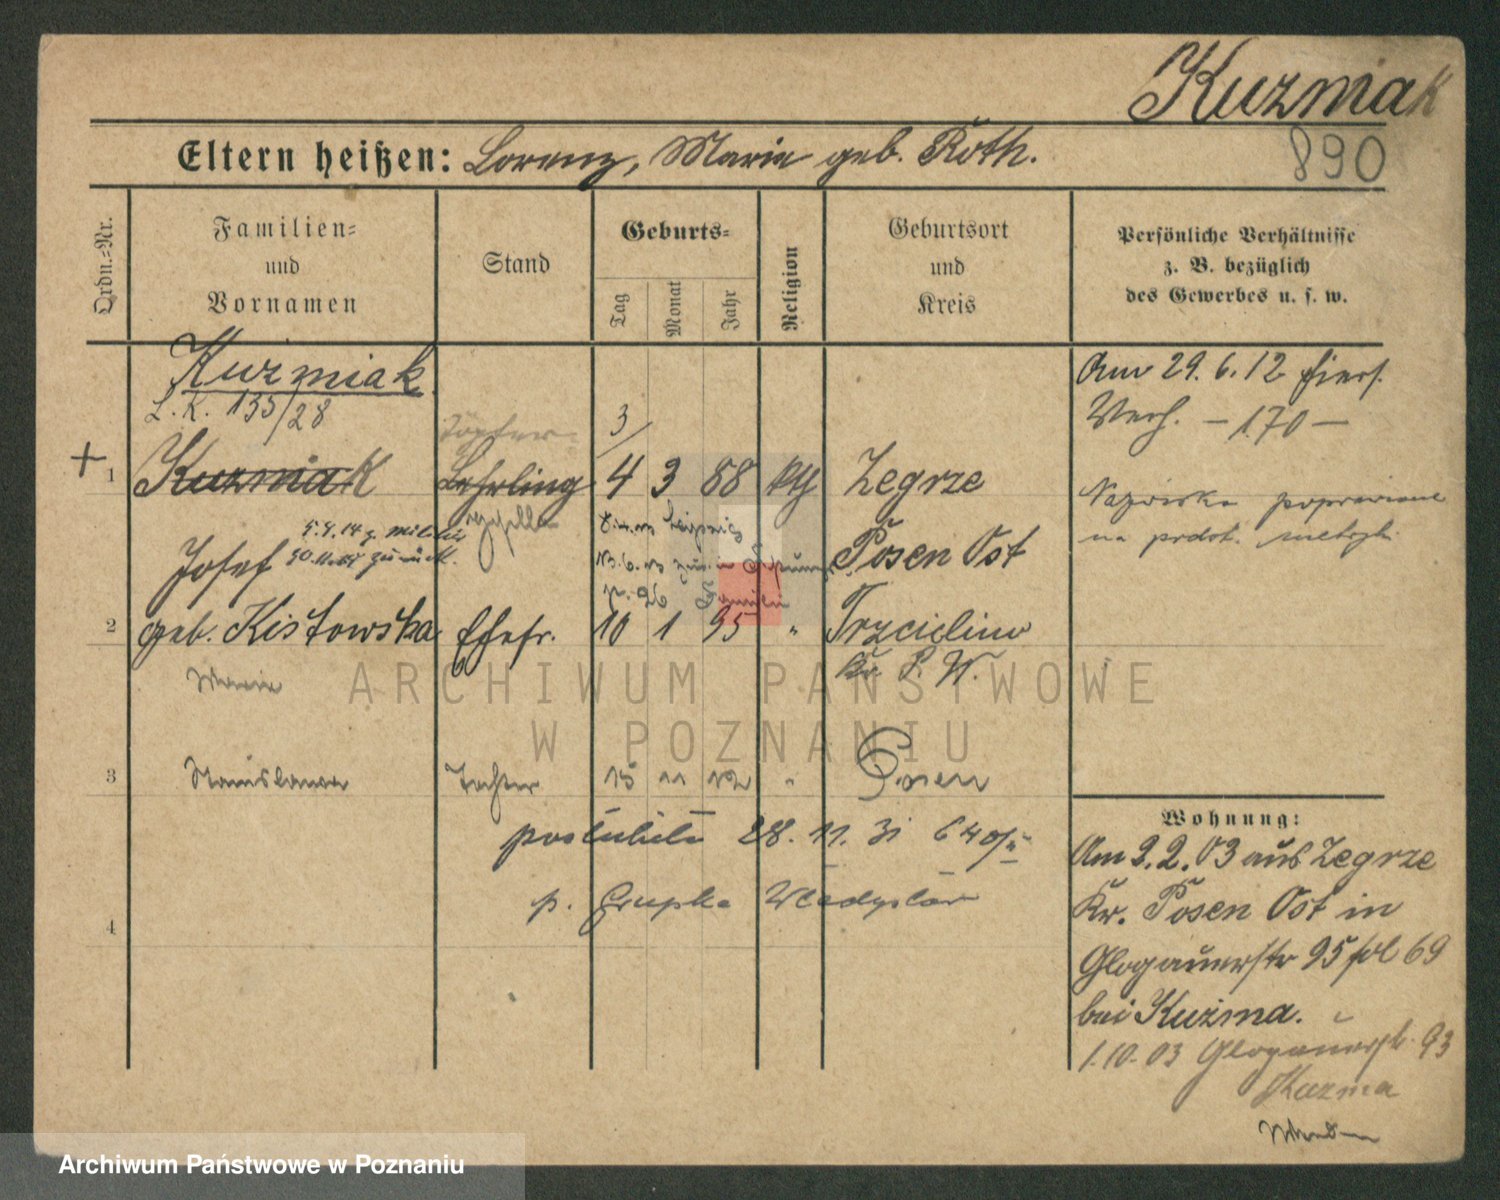 Kuzmiak
890
Eltern heißen: Lorenz, Marie geb. Roth.
Ordn.-Nr.
Familien- und Vornamen
Stand
Geburts-
Tag
Monat
Jahr
Religion
Geburtsort und Kreis
Persönliche Verhältnisse z. B. bezüglich des Gewerbes u. s. w.
Kuźmiak
L. K. 135/28
3/
+ 1 Kuzmiak Lehrling 4 3 88 kth Zegrze
Josef Posen Ost
5.9.14 z. Militär
30.11. zurück.
2 geb. Kistowska Ehefr. 10 1 95 " Trzcielino
Marie Kr. P. W.
3 Stanislawa Tochter 15 11 12 " Posen
28. 11. 31
4 p. Władysław
Am 29. 6. 12 hiers.
Verh. - 170 -
Nazwisko poprawione
na podst. metryk.
Wohnung:
Am 2.2.03 aus Zegrze
Kr. Posen Ost in
Glogauerstr 95 fol 69
bei Kuźma.
1.10.03 Glogauerstr. 93
Kuzma
ARCHIWUM PAŃSTWOWE
W POZNANIU
Archiwum Państwowe w Poznaniu